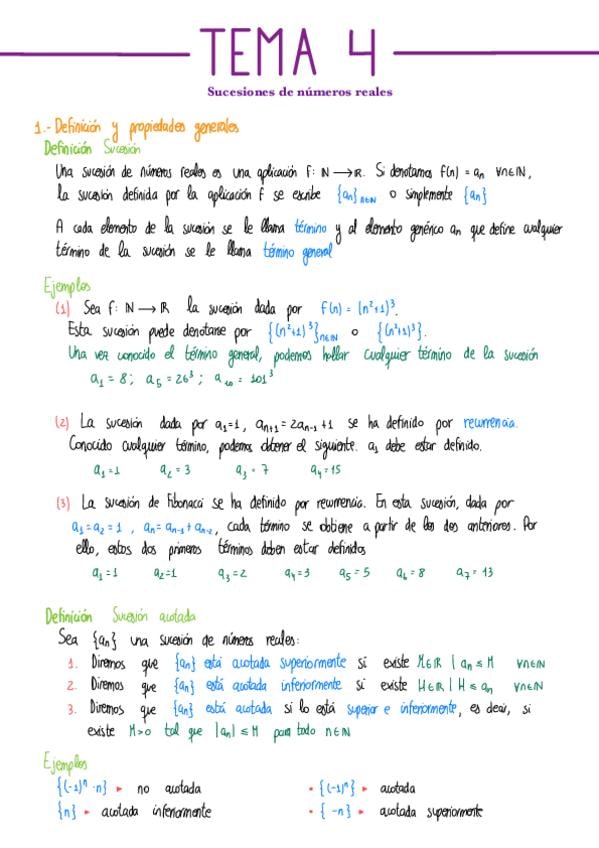 TEMA 4
Sucesiones de números reales
1.- Definición y propiedades generales
Definición Sucesión
Una sucesión de números reales es una aplicación f: ℕ → ℝ. Si denotamos f(n) = aₙ ∀n∈ℕ,
la sucesión definida por la aplicación f se escribe {aₙ}ₙ∈ℕ o simplemente {aₙ}
A cada elemento de la sucesión se le llama término y al elemento genérico aₙ que define cualquier
término de la sucesión se le llama término general
Ejemplos
(1) Sea f: ℕ → ℝ la sucesión dada por f(n) = (n²+1)³.
Esta sucesión puede denotarse por {(n²+1)³}ₙ∈ℕ o {(n²+1)³}.
Una vez conocido el término general, podemos hallar cualquier término de la sucesión
a₁ = 8; a₅ = 26³; a₁₀ = 101³
(2) La sucesión dada por a₁=1, aₙ₊₁ = 2aₙ₋₁ +1 se ha definido por recurrencia.
Conocido cualquier término, podemos obtener el siguiente. a₁ debe estar definido.
a₁ = 1 a₂ = 3 a₃ = 7 a₄ = 15
(3) La sucesión de Fibonacci se ha definido por recurrencia. En esta sucesión, dada por
a₁ = a₂ = 1 , aₙ = aₙ₋₁ + aₙ₋₂, cada término se obtiene a partir de los dos anteriores. Por
ello, estos dos primeros términos deben estar definidos
a₁ = 1 a₂=1 a₃ = 2 a₄ = 3 a₅ = 5 a₆ = 8 a₇ = 13
Definición Sucesión acotada
Sea {aₙ} una sucesión de números reales:
1. Diremos que {aₙ} está acotada superiormente si existe M∈ℝ | aₙ ≤ M ∀n∈ℕ
2. Diremos que {aₙ} está acotada inferiormente si existe H∈ℝ | H ≤ aₙ ∀n∈ℕ
3. Diremos que {aₙ} está acotada si lo está superior e inferiormente, es decir, si
existe M>0 tal que |aₙ| ≤ M para todo n∈ℕ
Ejemplos
{(-1)ⁿ · n} ► no acotada • {(-1)ⁿ} ► acotada
{n} ► acotada inferiormente • {-n} ► acotada superiormente